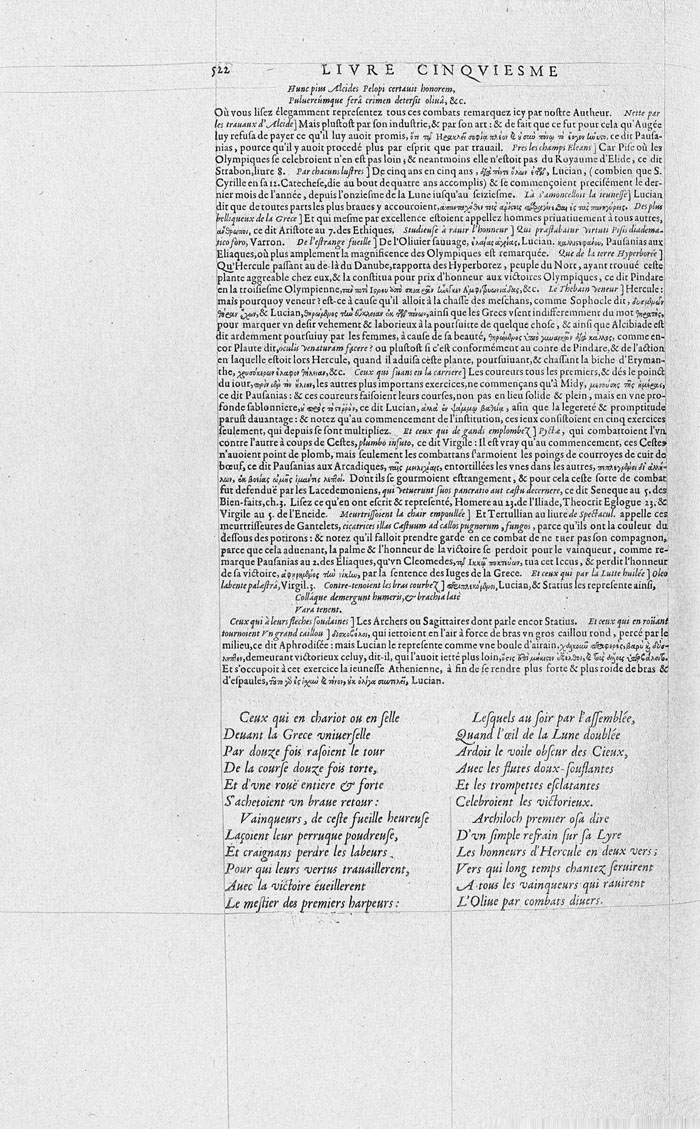 522 LIVRE CINQVIESME
Hunc pius Alcides Pelopi certauit honorem,
Puluereúmque ferâ crimen detersit oliuâ, &c.
Où vous lisez élegamment representez tous ces combats remarquez icy par nostre Autheur. Nette par
les trauaux d'Alcide] Mais plustost par son industrie, & par son art: & de fait que ce fut pour cela qu'Augée
luy refusa de payer ce qu'il luy auoit promis, ce dit Pausa-
nias, pource qu'il y auoit procedé plus par esprit que par trauail. Pres les champs Eleans] Car Pise où les
Olympiques se celebroient n'en est pas loin; & neantmoins elle n'estoit pas du Royaume d'Elide, ce dit
Strabon, liure 8. Par chacuns lustres] De cinq ans en cinq ans, Lucian, (combien que S.
Cyrille en sa 12. Catechese, die au bout de quatre ans accomplis) & se commençoient precisément le der-
nier mois de l'année, depuis l'onziesme de la Lune iusqu'au seiziesme. Là s'amonceloit la ieunesse] Lucian
dit que de toutes parts les plus braues y accouroient, Des plus
belliqueux de la Grece] Et qui mesme par excellence estoient appellez hommes priuatiuement à tous autres,
ce dit Aristote au 7. des Ethiques. Studieuse à rauir l'honneur] Qui præstabatur vertutis Pisis diadema-
tico foro, Varron. De l'estrange fueille] De l'Oliuier sauuage, Lucian. Pausanias aux
Eliaques, où plus amplement la magnificence des Olympiques est remarquée. Que de la terre Hyperborée]
Qu'Hercule passant au de-là du Danube, rapporta des Hyperborez, peuple du Nort, ayant trouué ceste
plante aggreable chez eux, & la constitua pour prix d'honneur aux victoires Olympiques, ce dit Pindare
en la troisiesme Olympienne, &c. Le Thebain veneur] Hercule:
mais pourquoy veneur? est-ce à cause qu'il alloit à la chasse des meschans, comme Sophocle dit,
& Lucian, ainsi que les Grecs vsent indifferemment du mot
pour marquer vn desir vehement & laborieux à la poursuitte de quelque chose, & ainsi que Alcibiade est
dit ardemment poursuiuy par les femmes, à cause de sa beauté, comme en-
cor Plaute dit, oculis venaturam facere? ou plustost si c'est conformément au conte de Pindare, & de l'action
en laquelle estoit lors Hercule, quand il aduisa ceste plante, poursuiuant, & chassant la biche d'Eryman-
the, &c. Ceux qui suans en la carriere] Les coureurs tous les premiers, & dés le poinct
du iour, les autres plus importans exercices, ne commençans qu'à Midy,
ce dit Pausanias: & ces coureurs faisoient leurs courses, non pas en lieu solide & plein, mais en vne pro-
fonde sablonniere, ce dit Lucian, afin que la legereté & promptitude
parust dauantage: & notez qu'au commencement de l'institution, ces ieux consistoient en cinq exercices
seulement, qui depuis se sont multipliez. Et ceux que de gandi emplombez] Pyctæ, qui combatroient l'vn
contre l'autre à coups de Cestes, plumbo insuto, ce dit Virgile: Il est vray qu'au commencement, ces Cestes
n'auoient point de plomb, mais seulement les combattans s'armoient les poings de courroyes de cuir de
bœuf, ce dit Pausanias aux Arcadiques, entortillées les vnes dans les autres,
Dont ils se gourmoient estrangement, & pour cela ceste sorte de combat
fut defenduë par les Lacedemoniens, qui vetuerunt suos pancratio aut castu decernere, ce dit Seneque au 5. des
Bien-faits, ch. 3. Lisez ce qu'en ont escrit & representé, Homere au 23. de l'Iliade, Theocrit Eglogue 23, &
Virgile au 5. de l'Eneide. Meurtrissoient la chair empoullée] Et Tertullian au liure de Spectacul. appelle ces
meurtrisseures de Gantelets, cicatrices illas Castuum ad callos pugnorum, fungos, parce qu'ils ont la couleur du
dessous des potirons: & notez qu'il falloit prendre garde en ce combat de ne tuer pas son compagnon,
parce que cela aduenant, la palme & l'honneur de la victoire se perdoit pour le vainqueur, comme re-
marque Pausanias au 2. des Eliaques, qu'vn Cleomedes, tua cet Iccus, & perdit l'honneur
de sa victoire, par la sentence des Iuges de la Grece. Et ceux qui par la Lutte huilée] Oleo
labente palæstrâ, Virgil. 3. Contre-tenoient les bras courbez] Lucian, & Statius les represente ainsi,
Collaque demergunt humeris, & brachia latè
Vara tenent.
Ceux qui à leurs flesches soudaines] Les Archers ou Sagittaires dont parle encor Statius. Et ceux qui en roüant
tournoient vn grand caillou] qui iettoient en l'air à force de bras vn gros caillou rond, percé par le
milieu, ce dit Aphrodisée: mais Lucian le represente comme vne boule d'airain.
demeurant victorieux celuy, dit-il, qui l'auoit ietté plus loin,
Et s'occupoit à cet exercice la ieunesse Athenienne, à fin de se rendre plus forte & plus roide de bras &
d'espaules, Lucian.
Ceux qui en chariot ou en selle
Deuant la Grece vniuerselle
Par douze fois rasoient le tour
De la course douze fois torte,
Et d'vne rouë entiere & forte
S'achetoient vn braue retour:
Vainqueurs, de ceste fueille heureuse
Laçoient leur perruque poudreuse,
Et craignans perdre les labeurs
Pour qui leurs vertus trauaillerent,
Auec la victoire éueillerent
Le mestier des premiers harpeurs:
Lesquels au soir par l'assemblée,
Quand l'œil de la Lune doublée
Ardoit le voile obscur des Cieux,
Auec les flutes doux-souflantes
Et les trompettes esclatantes
Celebroient les victorieux.
Archiloch premier osa dire
D'vn simple refrain sur sa Lyre
Les honneurs d'Hercule en deux vers;
Vers qui long temps chantez seruirent
A tous les vainqueurs qui rauirent
L'Oliue par combats diuers.